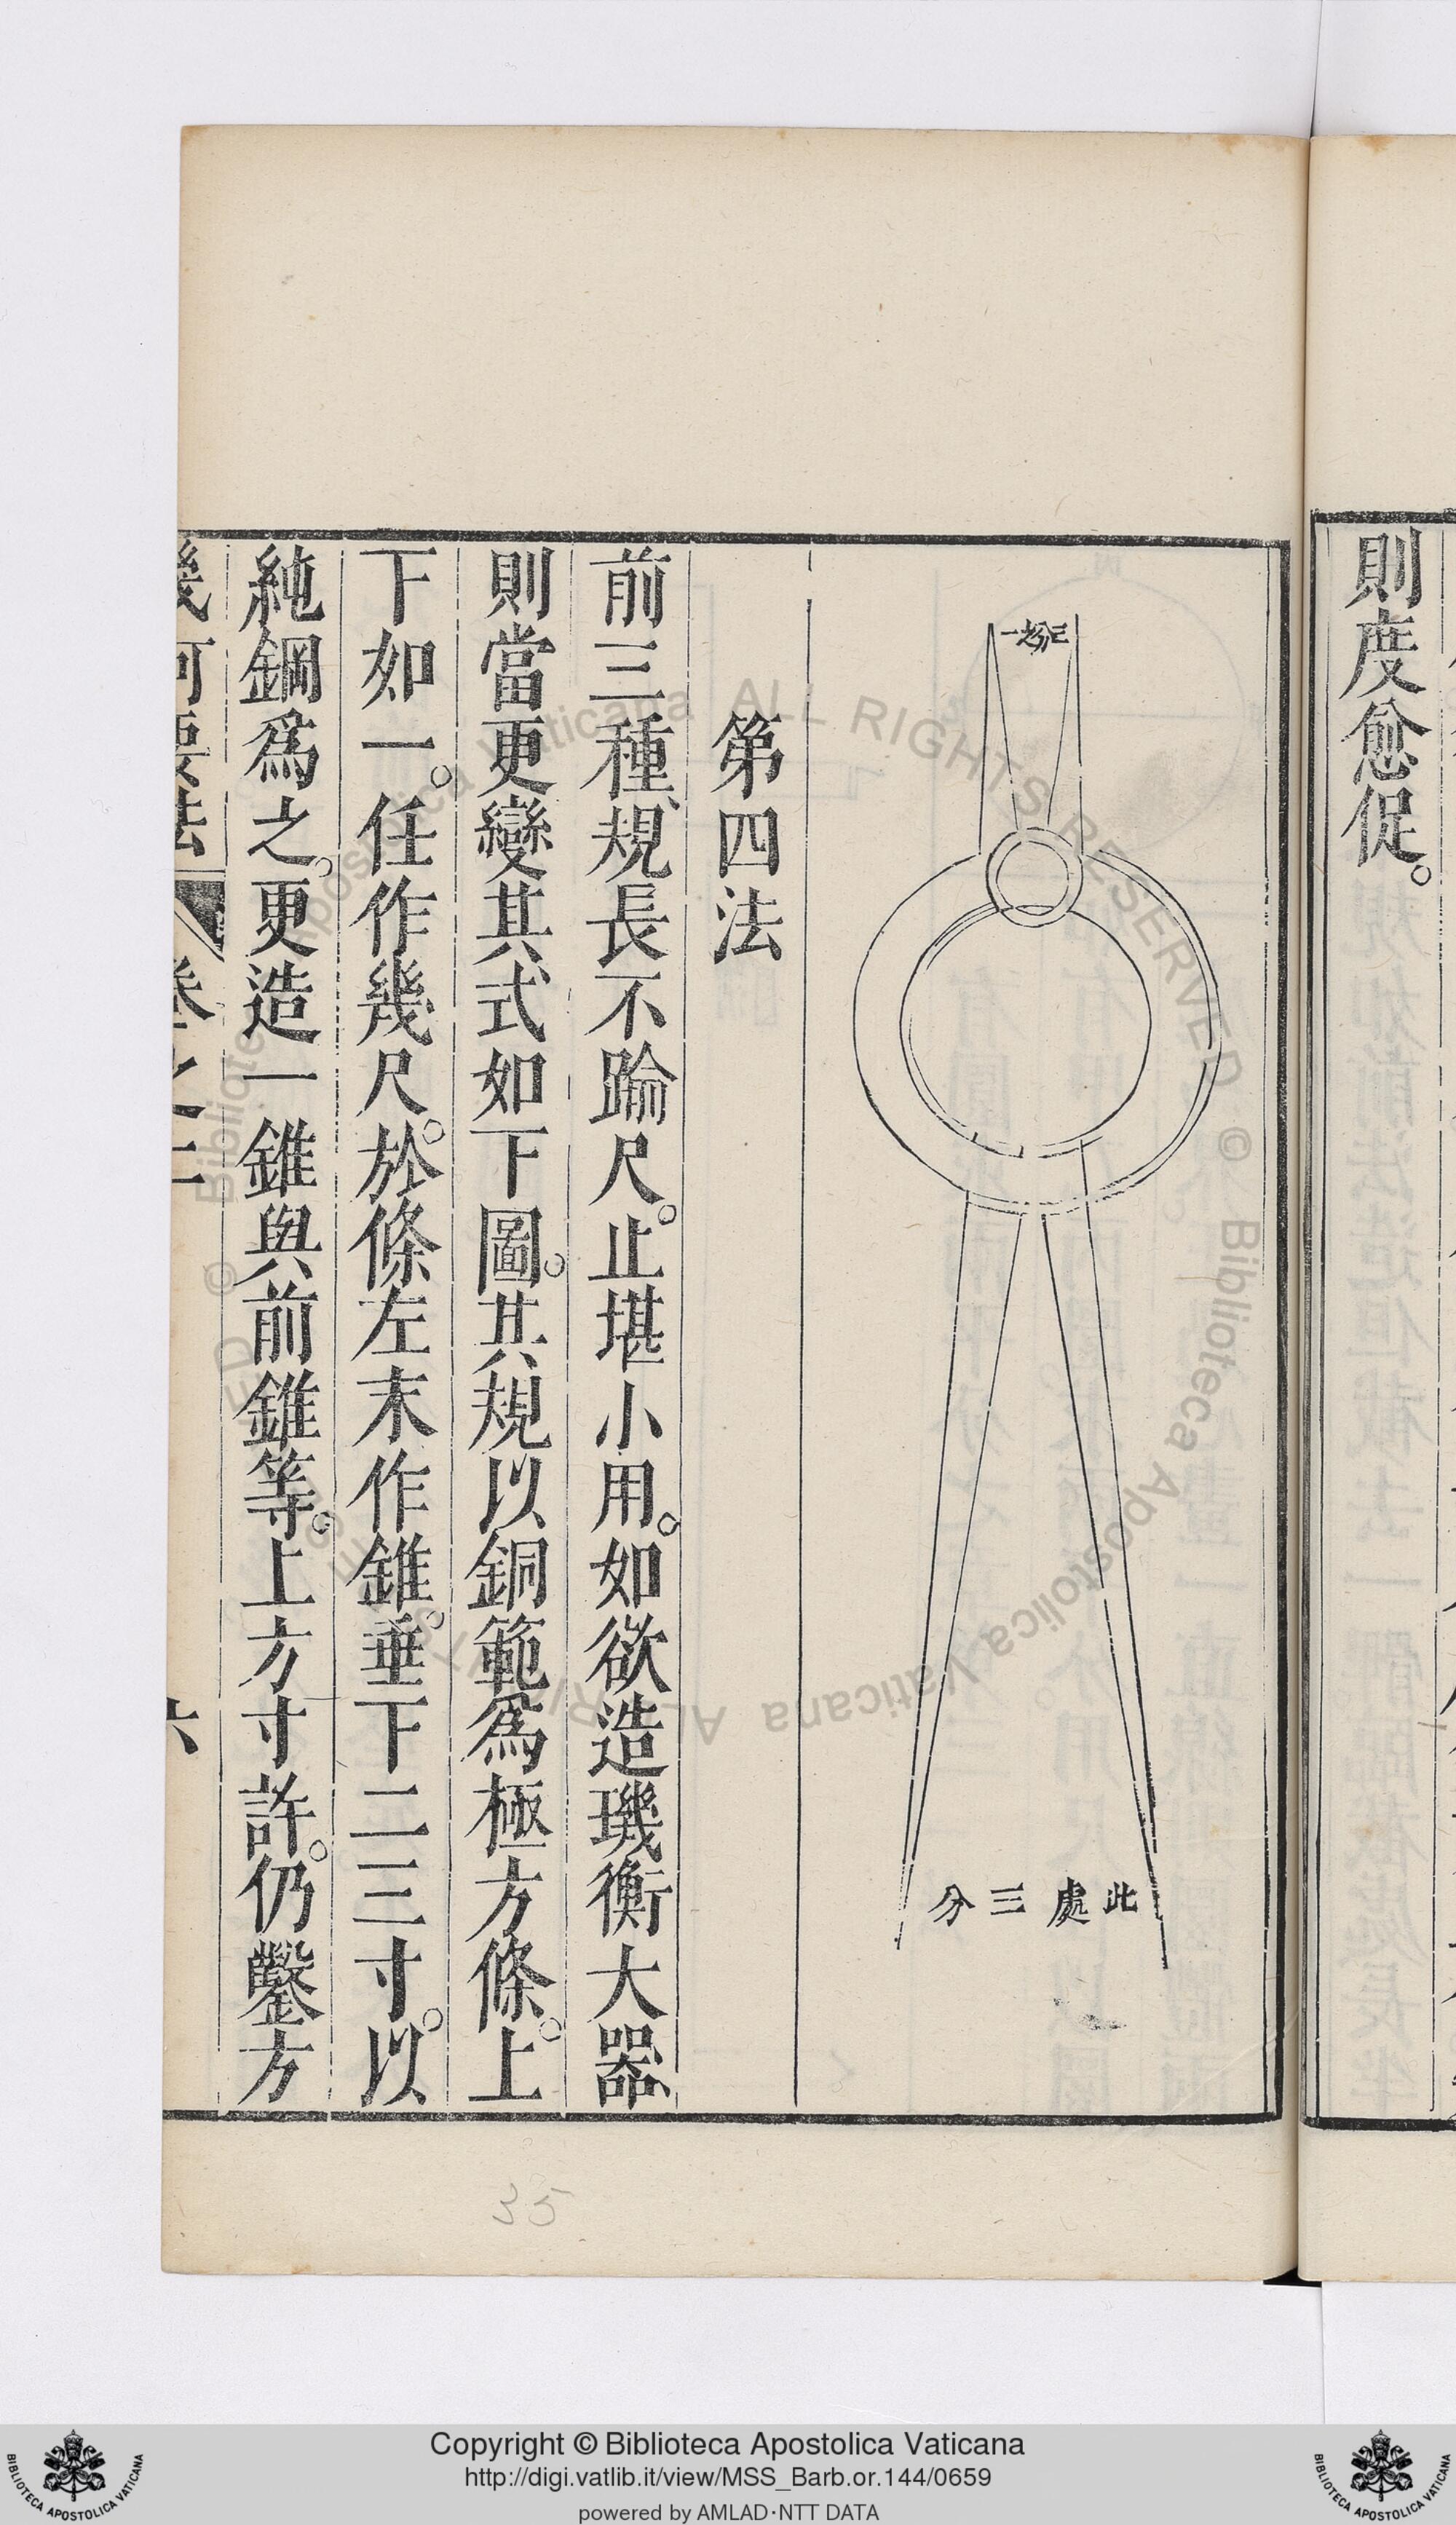 則度愈促。
此處三分
第四法
前三種規長不踰尺。止堪小用。如欲造璣衡大器、
則當更變其式如下圖。其規以銅範爲極方條。上
下如一。任作幾尺。於條左末作錐。垂下二三寸。以
純鋼爲之。更造一錐與前錐等。上方寸許。仍鑿方
幾何要法 卷之二 六
35
© Biblioteca Apostolica Vaticana ALL RIGHTS RESERVED
Copyright © Biblioteca Apostolica Vaticana
http://digi.vatlib.it/view/MSS_Barb.or.144/0659
powered by AMLAD·NTT DATA
BIBLIOTECA APOSTOLICA VATICANA
BIBLIOTECA APOSTOLICA VATICANA